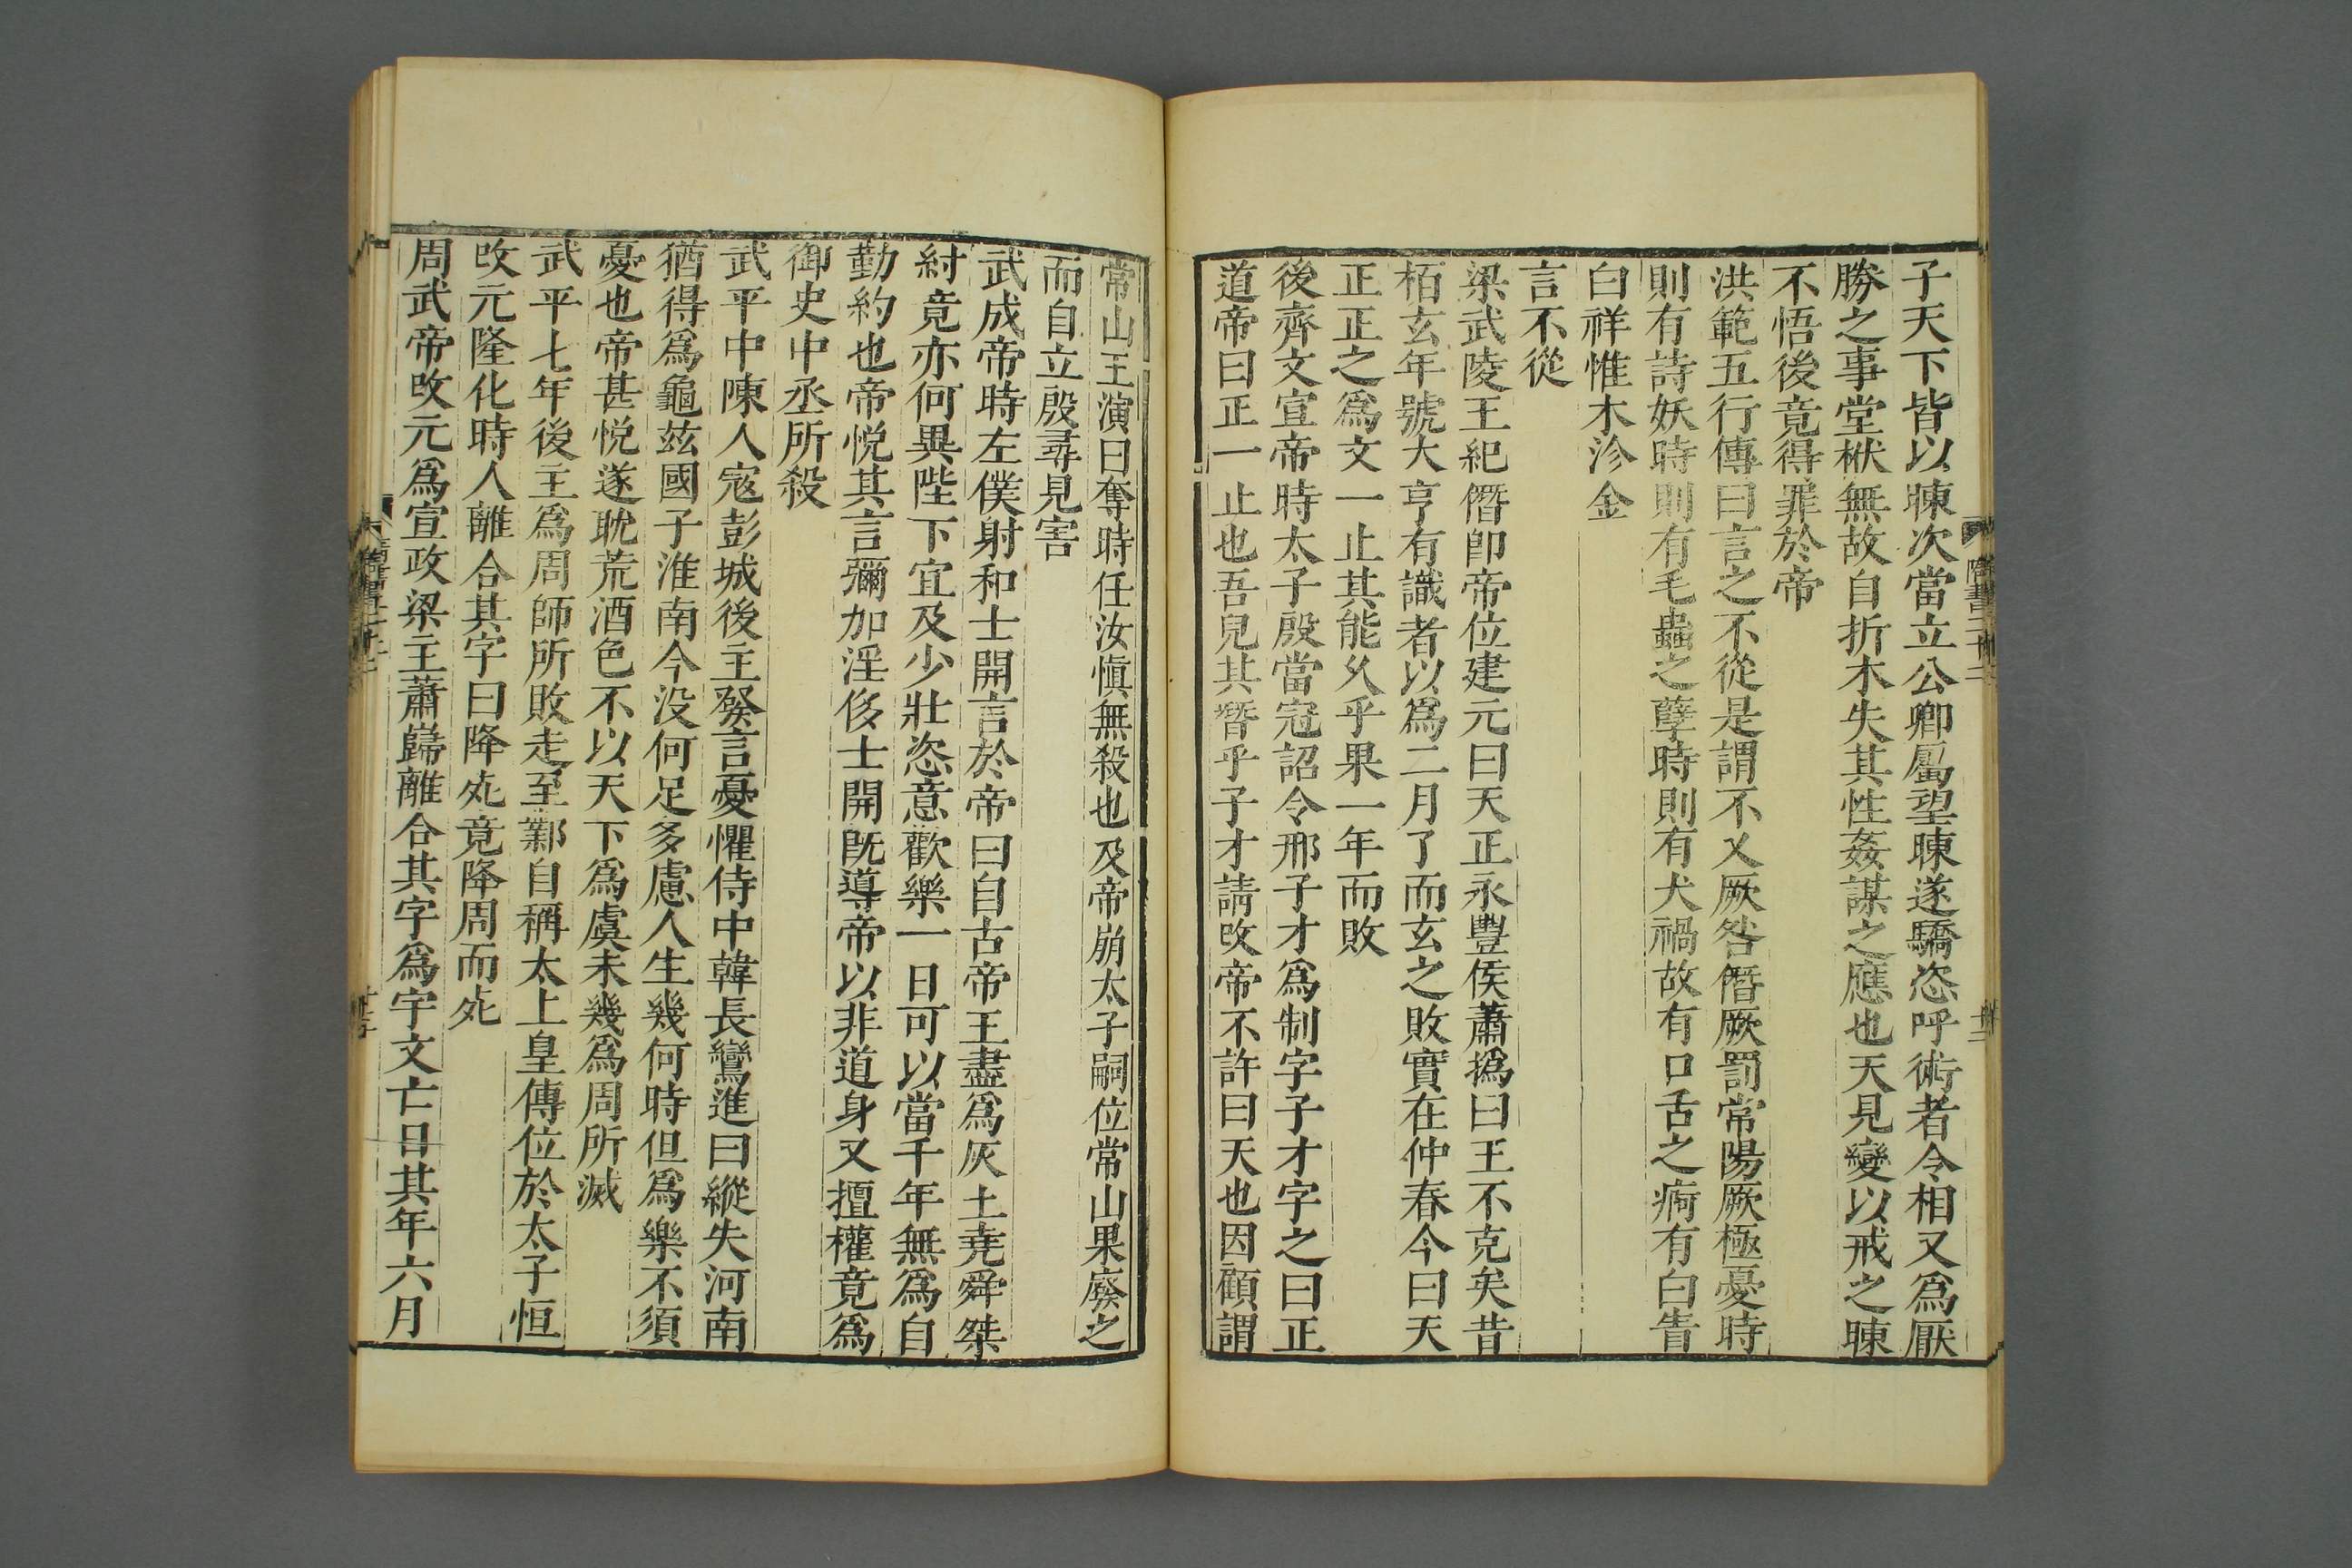 子天下皆以暕次當立公卿屬望暕遂驕恣呼術者令相又爲厭
勝之事堂栿無故自折木失其性姦謀之應也天見變以戒之暕
不悟後竟得罪於帝
洪範五行傳曰言之不從是謂不乂厥咎僭厥罰常陽厥極憂時
則有詩妖時則有毛蟲之孽時則有犬禍故有口舌之痾有白眚
白祥惟木沴金
言不從
梁武陵王紀僭卽帝位建元曰天正永豐侯蕭撝曰王不克矣昔
栢玄年號大亨有識者以爲二月了而玄之敗實在仲春今曰天
正正之爲文一止其能久乎果一年而敗
後齊文宣帝時太子殷當冠詔令邢子才爲制字子才字之曰正
道帝曰正一止也吾兒其替乎子才請改帝不許曰天也因顧謂
常山王演曰奪時任汝愼無殺也及帝崩太子嗣位常山果廢之
而自立殷尋見害
武成帝時左僕射和士開言於帝曰自古帝王盡爲灰土堯舜桀
紂竟亦何異陛下宜及少壯恣意歡樂一日可以當千年無爲自
勤約也帝悦其言彌加淫侈士開旣導帝以非道身又擅權竟爲
御史中丞所殺
武平中陳人寇彭城後主發言憂懼侍中韓長鸞進曰縱失河南
猶得爲龜玆國子淮南今没何足多慮人生幾何時但爲樂不須
憂也帝甚悦遂耽荒酒色不以天下爲虞未幾爲周所滅
武平七年後主爲周師所敗走至鄴自稱太上皇傳位於太子恒
改元隆化時人離合其字曰降死竟降周而死
周武帝改元爲宣政梁主蕭歸離合其字爲宇文亡日其年六月